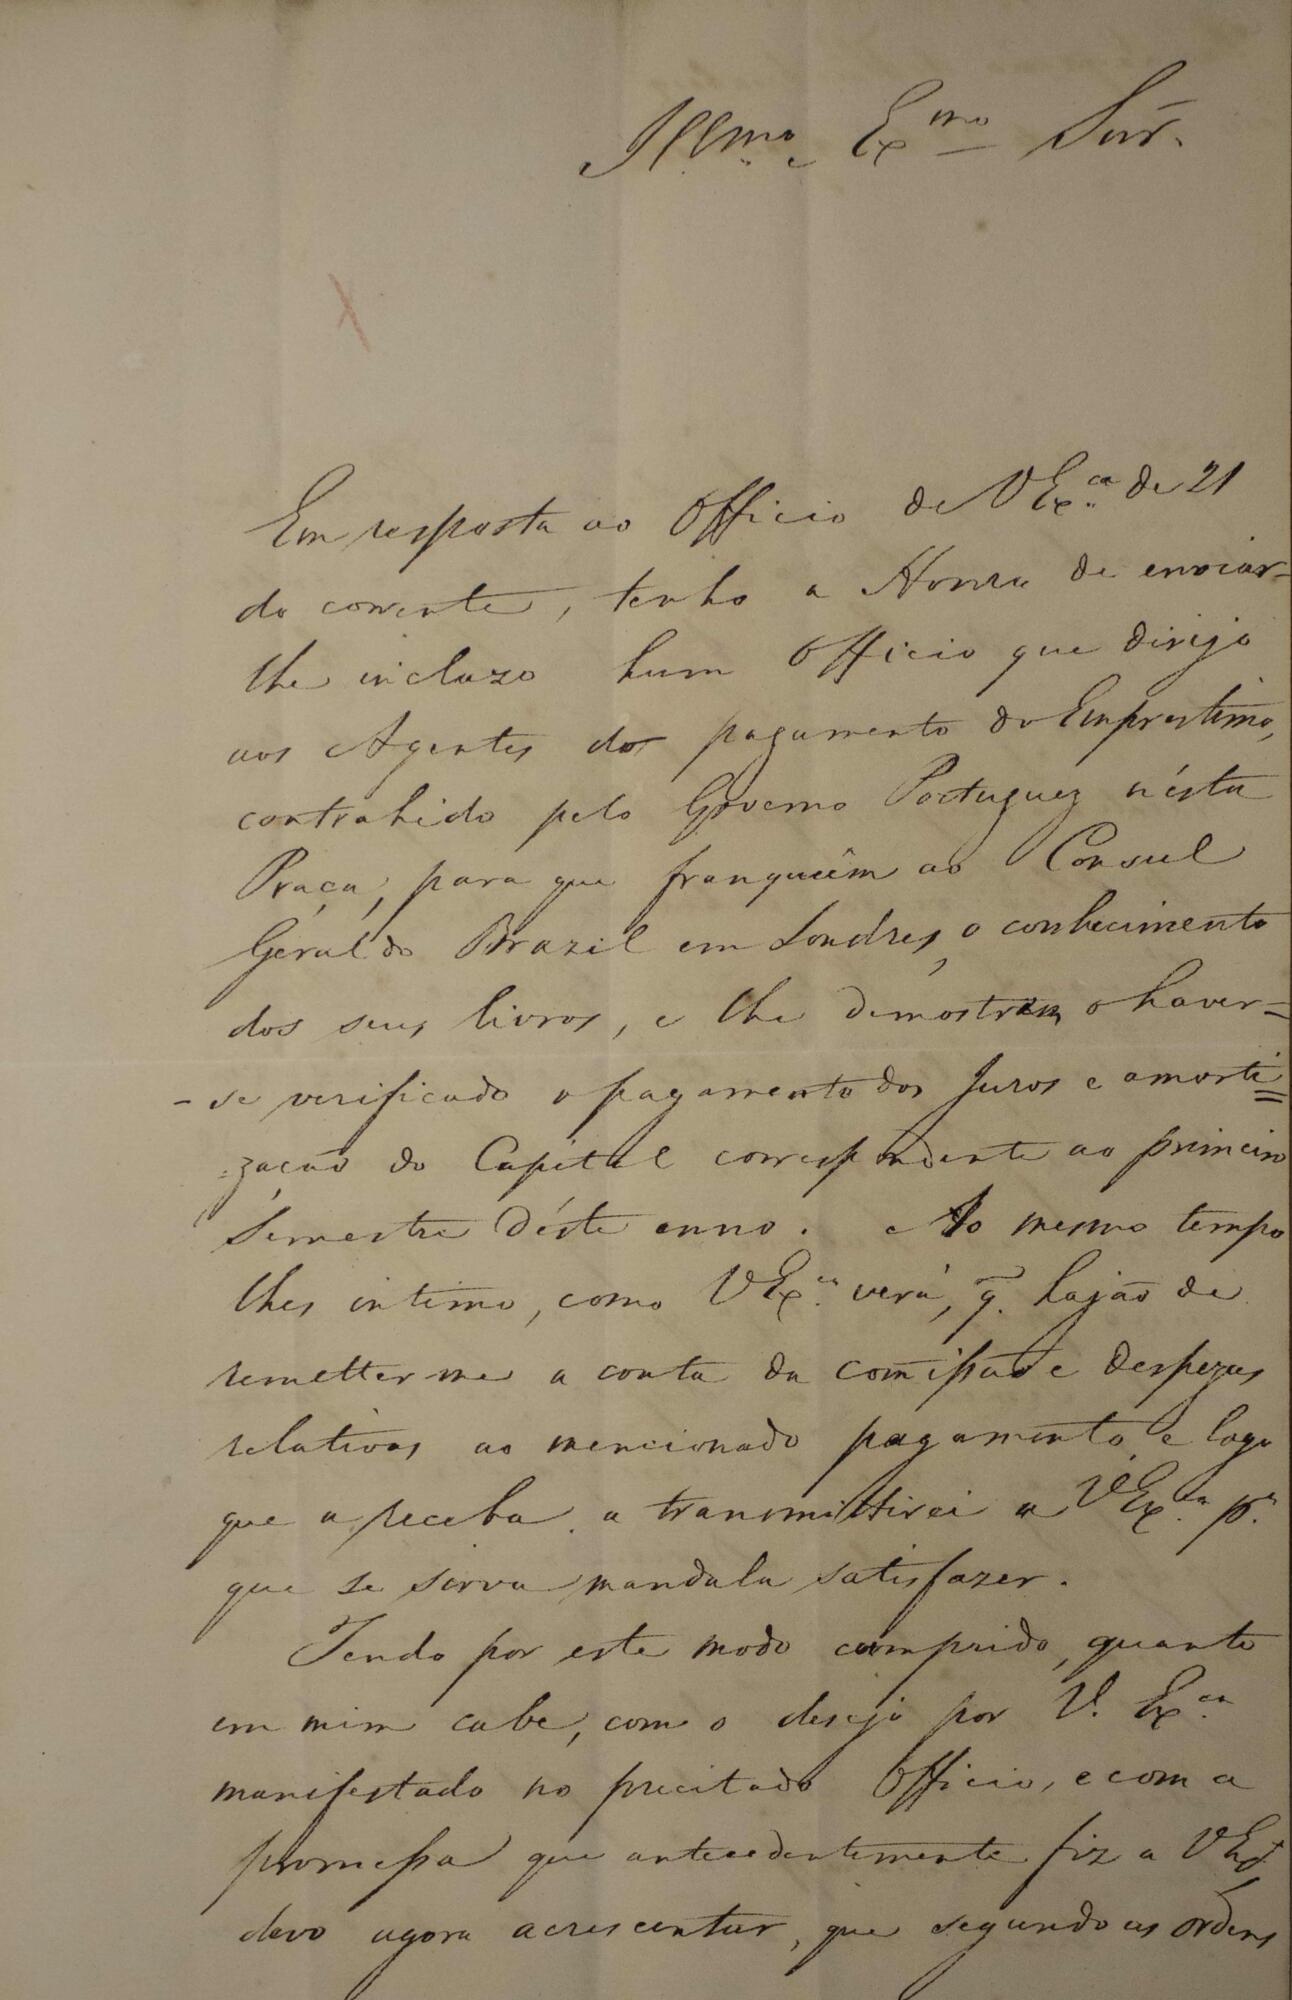 Illmo. Exmo Snr.
Em resposta ao Officio de VExca. de 21
do corrente, tenho a Honra de enviar-
lhe incluzo hum Officio que dirijo
aos Agentes do pagamento do Emprestimo,
contrahido pelo Governo Portuguez nésta
Praça, para que franquêem ao Consul
Géral do Brazil em Londres, o conhecimento
dos seus livros, e lhe demostrem o haver=
-se verificado o pagamento dos Juros e amorti=
=zação do Capital correspondente ao primeiro
Semestre déste anno. Ao mesmo tempo
lhes intimo, como VExca. verá, q̃. hajão de
remetter me a conta da comissão e despezas
relativas ao mencionado pagamento, e logo
que a receba a transmittirei a VExca. p.a
que se sirva mandala satisfazer.
Tendo por este modo cumprido, quanto
em mim cabe, com o desejo por V. Exca.
manifestado no precitado Officio, e com a
promessa que antecedentemente fiz a VExa.
devo agora acrescentar, que segundo as ordens